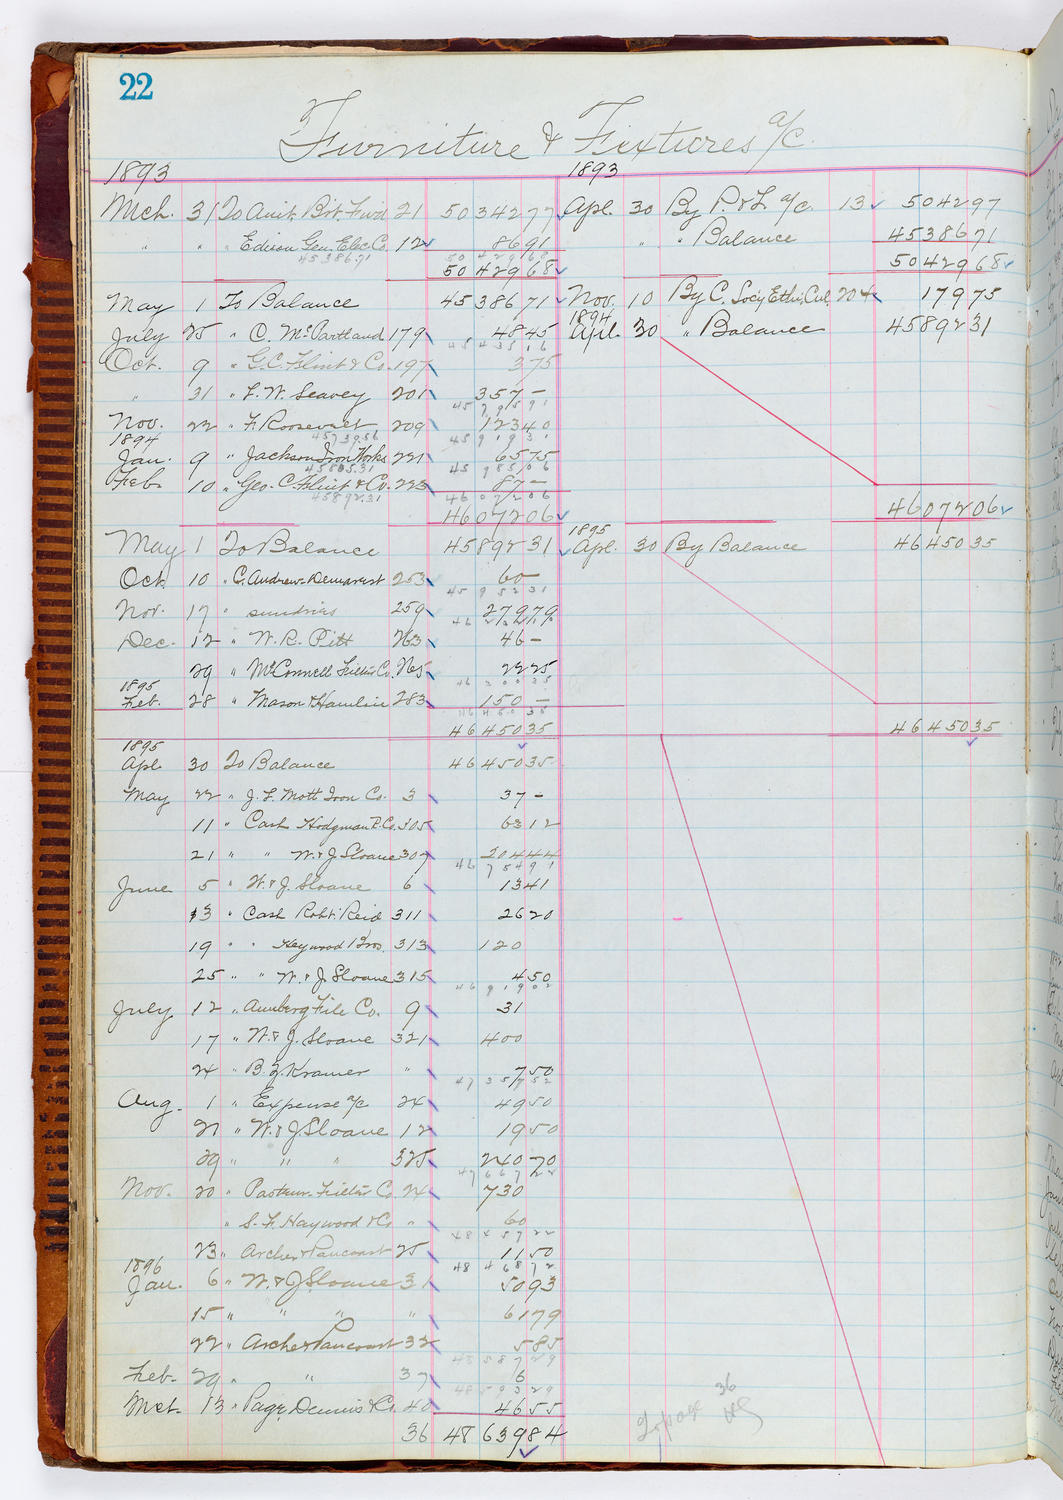 22
Furniture & Fixtures a/c
1893 1893
Mch. 31 To Amt. Bot. Fwd 21 5034277 Apl. 30 By P. & L. a/c. 13 504297
" " " Edison Gen. Elec. Co. 12 8691 " " Balance 4538671
4538671 5042968
5042968 5042968
May 1 To Balance 4538671 Nov. 10 By C. Socy Ethic. Cul. 204 17975
1894
July 25 " O. McPartland 179 4845 Apl. 30 " Balance 4589231
4543516
Oct. 9 " G. C. Flint & Co. 197 375
" 31 " L. W. Seavey 201 357 –
4579591
Nov. 22 " F. Roosevelt 209 12340
1894 4573956 4591931
Jan. 9 " Jackson Iron Works 221 6575
4580531 4598506
Feb. 10 " Geo. C. Flint & Co. 223 87 –
4589231 4607206
4607206 4607206
1895
May 1 To Balance 4589231 Apl. 30 By Balance 4645035
Oct. 10 " C. Andrew Demarest 253 60 –
4595231
Nov. 17 " sundries 259 27979
Dec. 12 " W. R. Pitt 263 46 –
29 " McConnell Filter Co. 265 2225
1895
Feb. 28 " Mason & Hamlin 283 150 –
4645035
4645035 4645035
1895
Apl. 30 To Balance 4645035
May 22 " J. L. Mott Iron Co. 3 37 –
11 " Cash Hodgman R. Co. 305 6312
21 " " W. & J. Sloane 307 20444
4675491
June 5 " W. & J. Sloane 6 1341
13 " Cash Robt. Reid 311 2620
19 " " Heywood Bros. 313 120
25 " " W. & J. Sloane 315 450
4691902
July 12 " Amberg File Co. 9 31
17 " W. & J. Sloane 321 400
24 " B. J. Kramer " 750
4735752
Aug. 1 " Expense a/c 24 4950
21 " W. & J. Sloane 12 1950
29 " " " 325 24070
4766722
Nov. 20 " Pasteur Filter Co 24 730
" S. F. Haywood & Co " 60
4845722
23 " Archer & Pancoast 25 1150
1896 4846872
Jan. 6 " W. & J. Sloane 31 5093
15 " " " " 6179
22 " Archer & Pancoast 32 585
4858729
Feb. 29 " " 37 6
4859329
Mch. 13 " Page, Dennis & Co. 40 4655
36
36 4863984